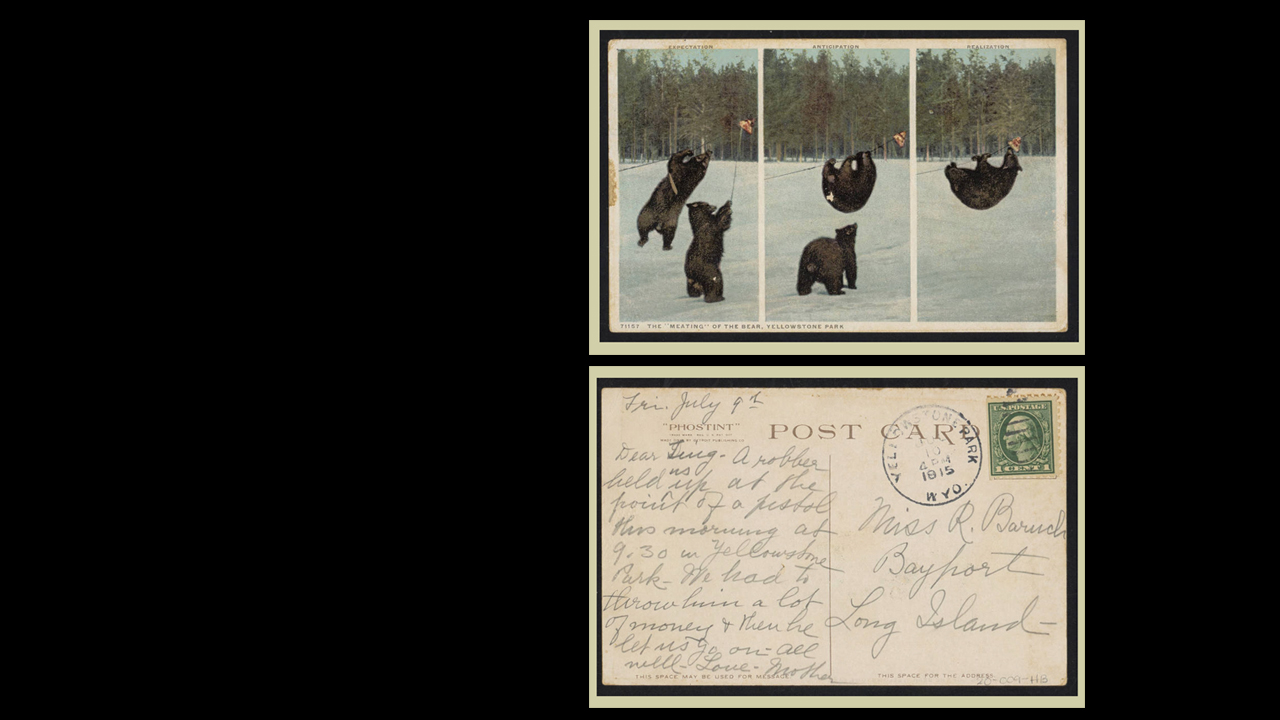 EXPECTATION
ANTICIPATION
REALIZATION
71157 THE "MEATING" OF THE BEAR, YELLOWSTONE PARK
Fri. July 9th
"PHOSTINT"
POST CARD
U.S. POSTAGE
YELLOWSTONE PARK
10
4 PM
1915
WYO.
Dear - A robber
held us up at the
point of a pistol
this morning at
9.30 in Yellowstone
Park - We had to
throw him a lot
of money & then he
let us go on - all
well - Love - Mother
Miss R. Baruch
Bayport
Long Island -
THIS SPACE MAY BE USED FOR MESSAGE
THIS SPACE FOR THE ADDRESS